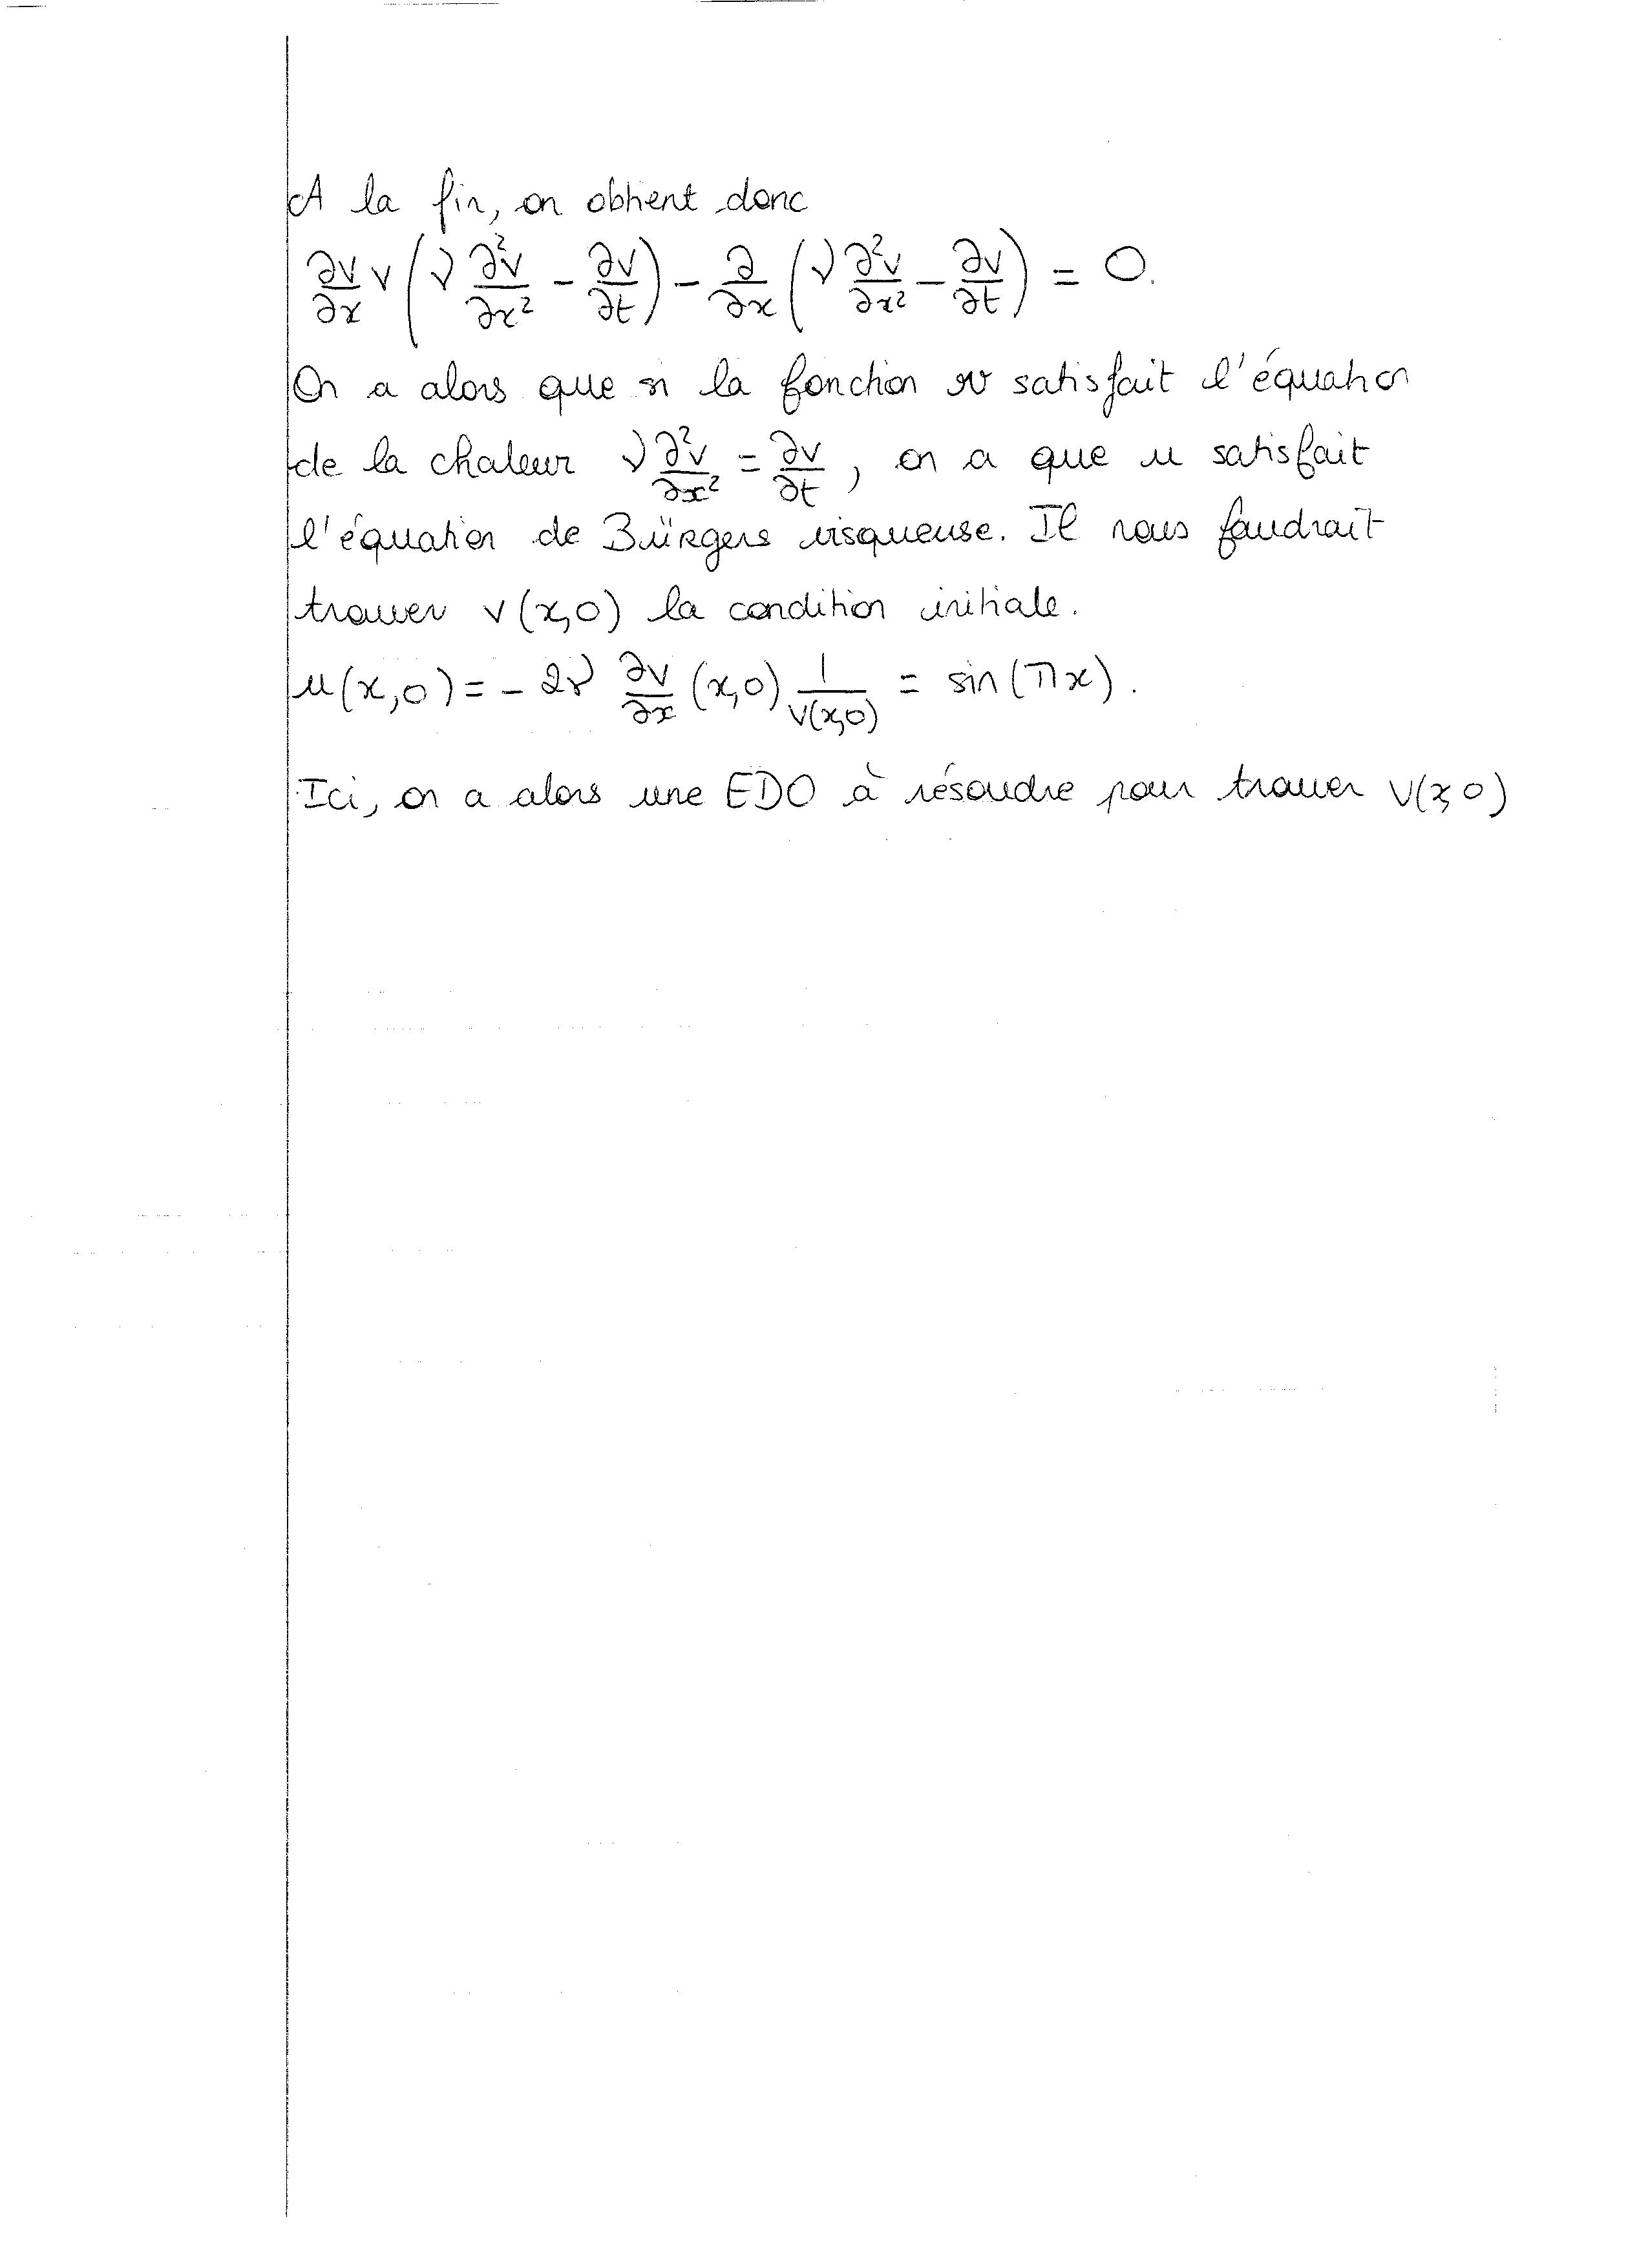 A la fin, on obtient donc
∂v/∂x v (ν ∂²v/∂x² - ∂v/∂t) - ∂/∂x (ν ∂²v/∂x² - ∂v/∂t) = 0.
On a alors que si la fonction v satisfait l'équation
de la chaleur ν ∂²v/∂x² = ∂v/∂t, on a que u satisfait
l'équation de Bürgers visqueuse. Il nous faudrait
trouver v(x,0) la condition initiale.
u(x,0) = -2ν ∂v/∂x (x,0) 1/v(x,0) = sin(πx).
Ici, on a alors une EDO à résoudre pour trouver v(x,0)